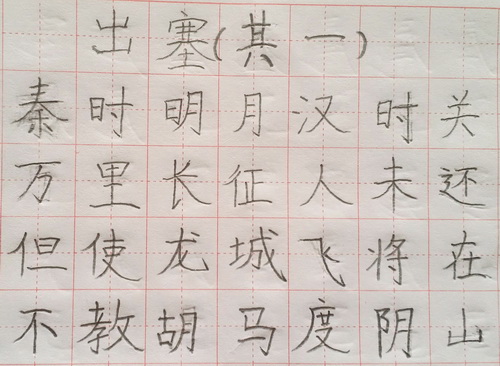 出塞(其一)
秦时明月汉时关
万里长征人未还
但使龙城飞将在
不教胡马度阴山